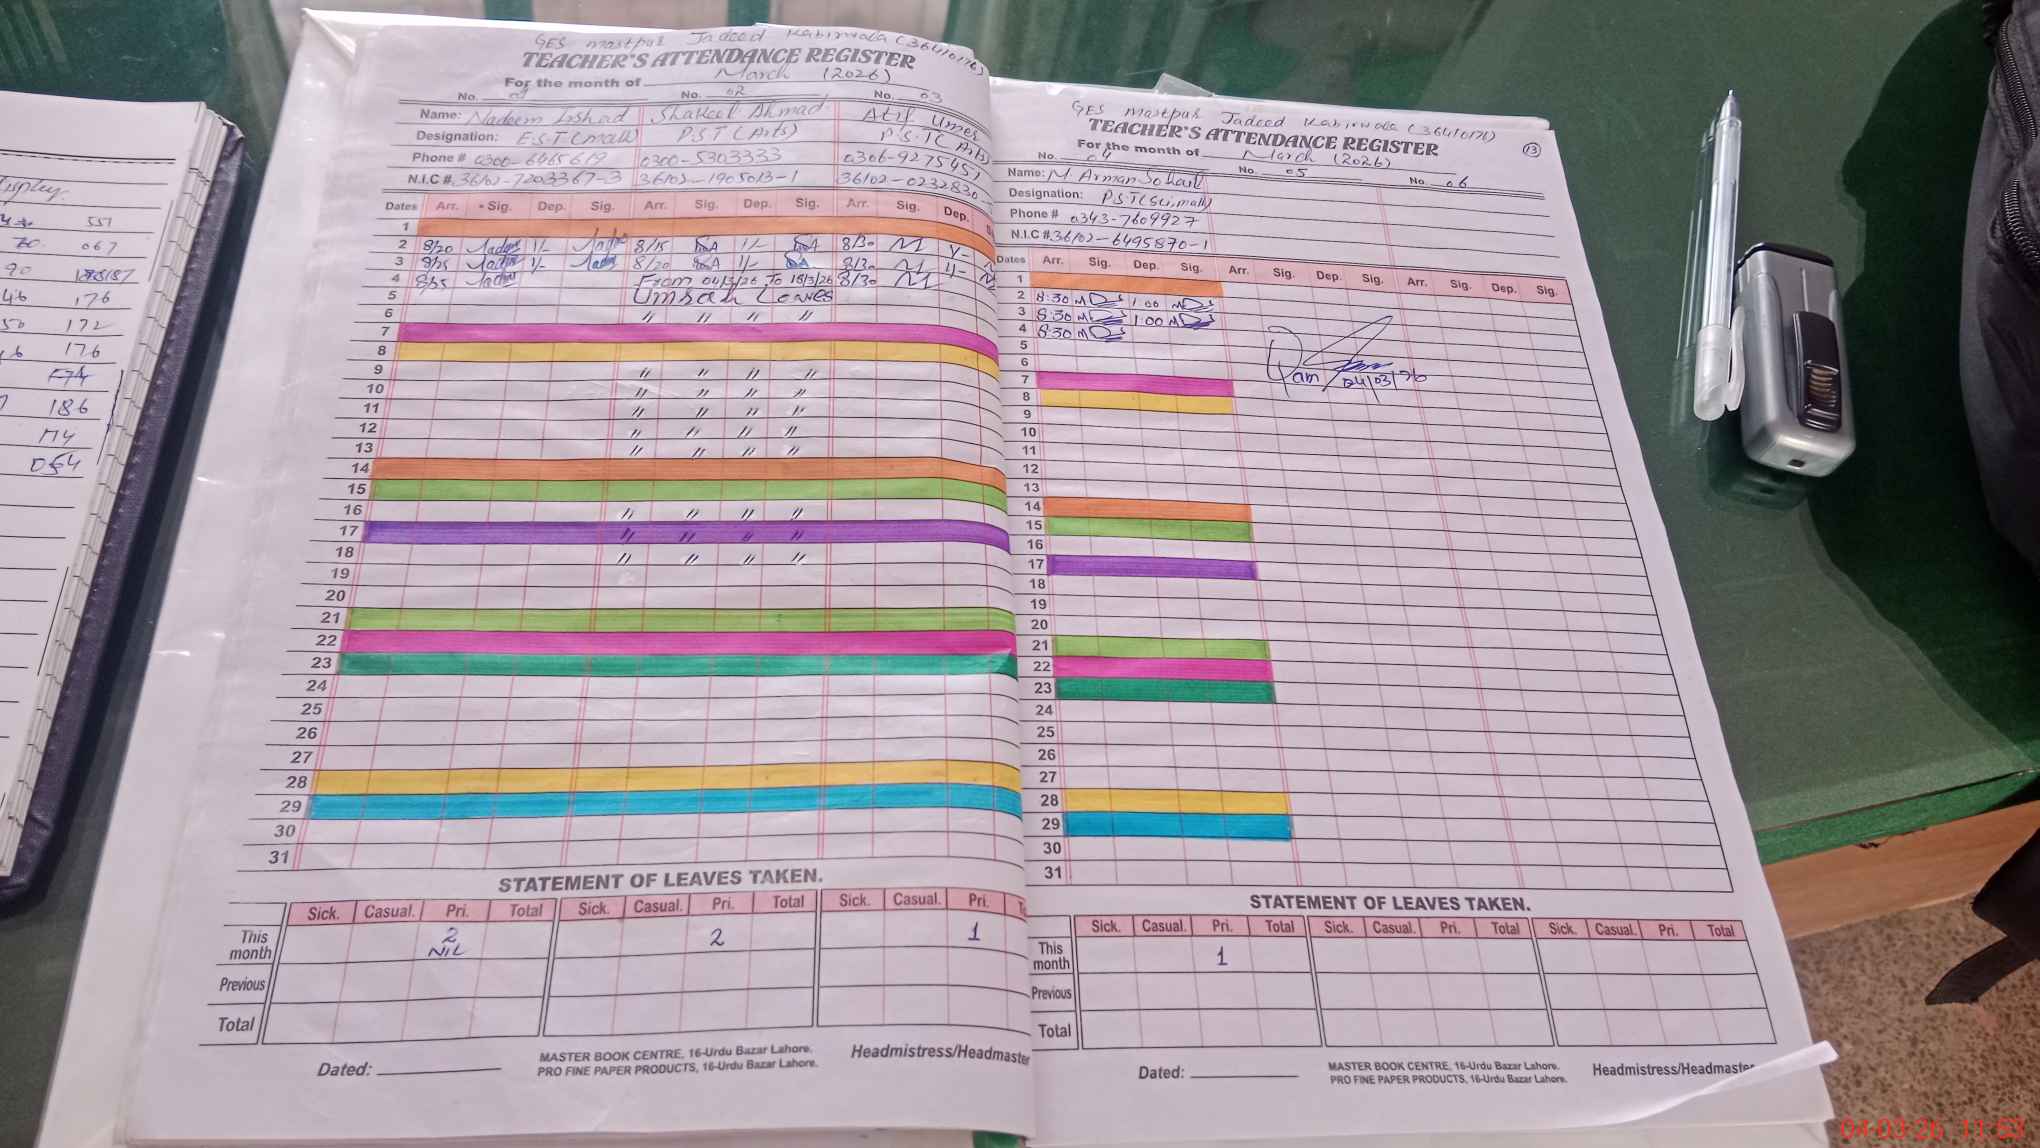 isplay.
551
067
90
176
50 172
176
186
054
GES mastpur Jadeed Kabirwala (36410176)
TEACHER'S ATTENDANCE REGISTER
For the month of March (2026)
No. 01 No. 02 No. 03
Name: Nadeem Irshad Shakeel Ahmad Atif Umer
Designation: E.S.T (mall) P.S.T (Arts) P.S.T (Arts)
Phone # 0300-6465619 0300-5303333 0306-9275451
N.I.C # 36102-7203367-3 36102-1905013-1 36102-0232830-
Dates Arr. Sig. Dep. Sig. Arr. Sig. Dep. Sig. Arr. Sig. Dep.
1
2 8/20 1/- 8/15 1/- 8/30
3 8/25 1/- 8/20 1/- 8/30
4 8/25 From 04/3/26 To 18/3/26 8/30
5 Umrah Leaves
6 " " " "
7
8
9 " " " "
10 " " " "
11 " " " "
12 " " " "
13 " " " "
14
15
16 " " " "
17 " " " "
18 " " " "
19
20
21
22
23
24
25
26
27
28
29
30
31
STATEMENT OF LEAVES TAKEN.
Sick. Casual. Pri. Total Sick. Casual. Pri. Total Sick. Casual. Pri.
This month 2 NIL 2 1
Previous
Total
Dated:
MASTER BOOK CENTRE, 16-Urdu Bazar Lahore.
PRO FINE PAPER PRODUCTS, 16-Urdu Bazar Lahore.
Headmistress/Headmaster
GES mastpur Jadeed Kabirwala (36410176)
TEACHER'S ATTENDANCE REGISTER
13
For the month of March (2026)
No. 04 No. 05 No. 06
Name: M Arman Sohail
Designation: P.S.T (Sci, math)
Phone # 0343-7609927
N.I.C # 36102-6495870-1
Dates Arr. Sig. Dep. Sig. Arr. Sig. Dep. Sig. Arr. Sig. Dep. Sig.
1
2 8:30 1:00
3 8:30 1:00
4 8:30
5
6
7
04/03/26
8
9
10
11
12
13
14
15
16
17
18
19
20
21
22
23
24
25
26
27
28
29
30
31
STATEMENT OF LEAVES TAKEN.
Sick. Casual. Pri. Total Sick. Casual. Pri. Total Sick. Casual. Pri. Total
This month 1
Previous
Total
Dated:
MASTER BOOK CENTRE, 16-Urdu Bazar Lahore.
PRO FINE PAPER PRODUCTS, 16-Urdu Bazar Lahore.
Headmistress/Headmaster
04-03-26 13:53